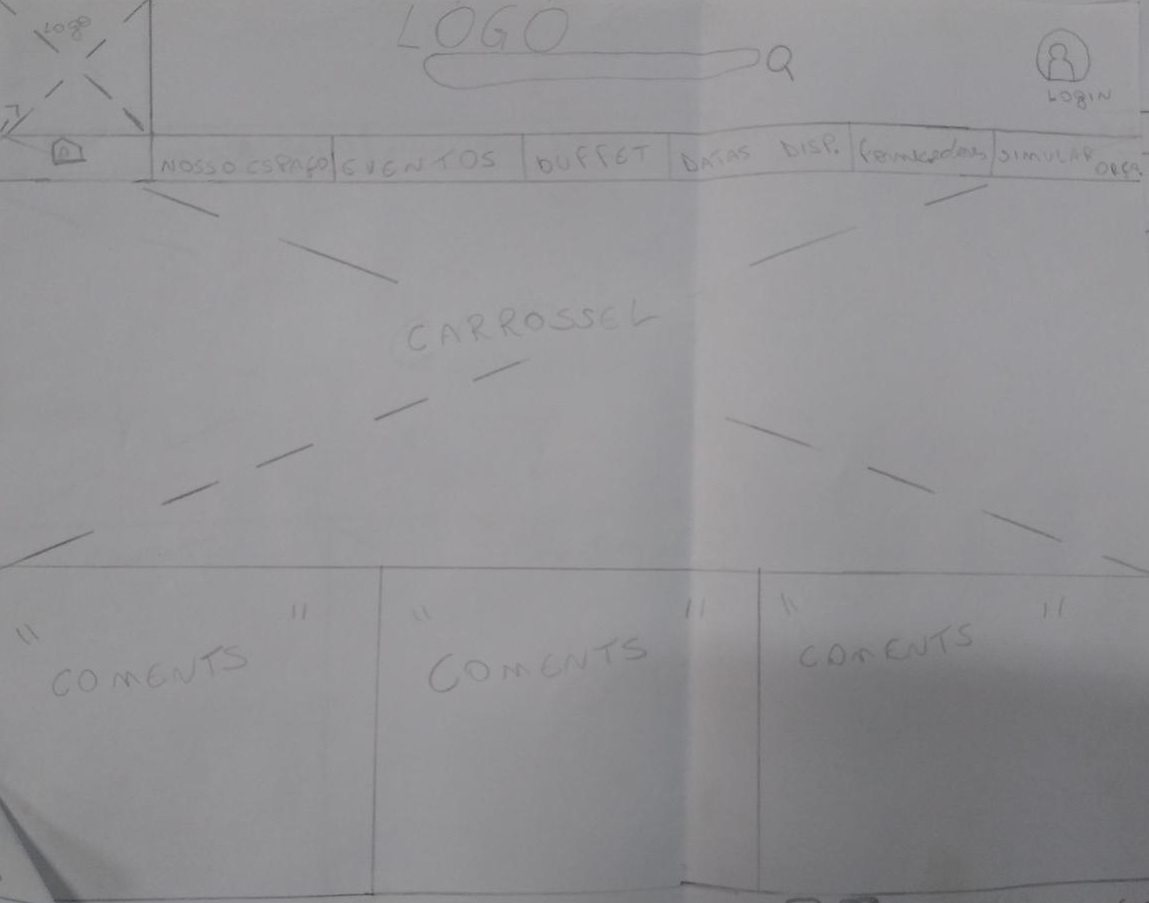 Logo
LOGO
LOGIN
NOSSO ESPAÇO EVENTOS BUFFET DATAS DISP. fornecedores SIMULAR ORÇA
CARROSSEL
" " " " " "
COMENTS COMENTS COMENTS